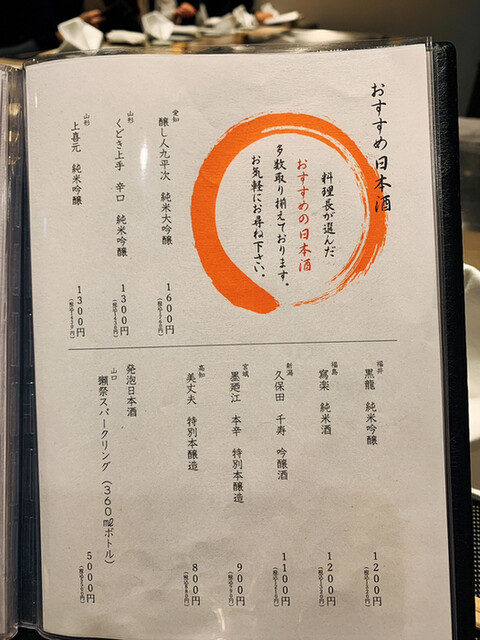 おすすめ日本酒
料理長が選んだ
おすすめの日本酒
多数取り揃えております。
お気軽にお尋ね下さい。
愛知
醸し人九平次 純米大吟醸 1600円
(税込1760円)
山形
くどき上手 辛口 純米吟醸 1300円
(税込1430円)
山形
上喜元 純米吟醸 1300円
(税込1430円)
福井
黒龍 純米吟醸 1200円
(税込1320円)
福島
寫楽 純米酒 1200円
(税込1320円)
新潟
久保田 千寿 吟醸酒 1100円
(税込1210円)
宮城
墨廼江 本辛 特別本醸造 900円
(税込990円)
高知
美丈夫 特別本醸造 800円
(税込880円)
発泡日本酒
山口
獺祭スパークリング(360㎖ボトル) 5000円
(税込5500円)